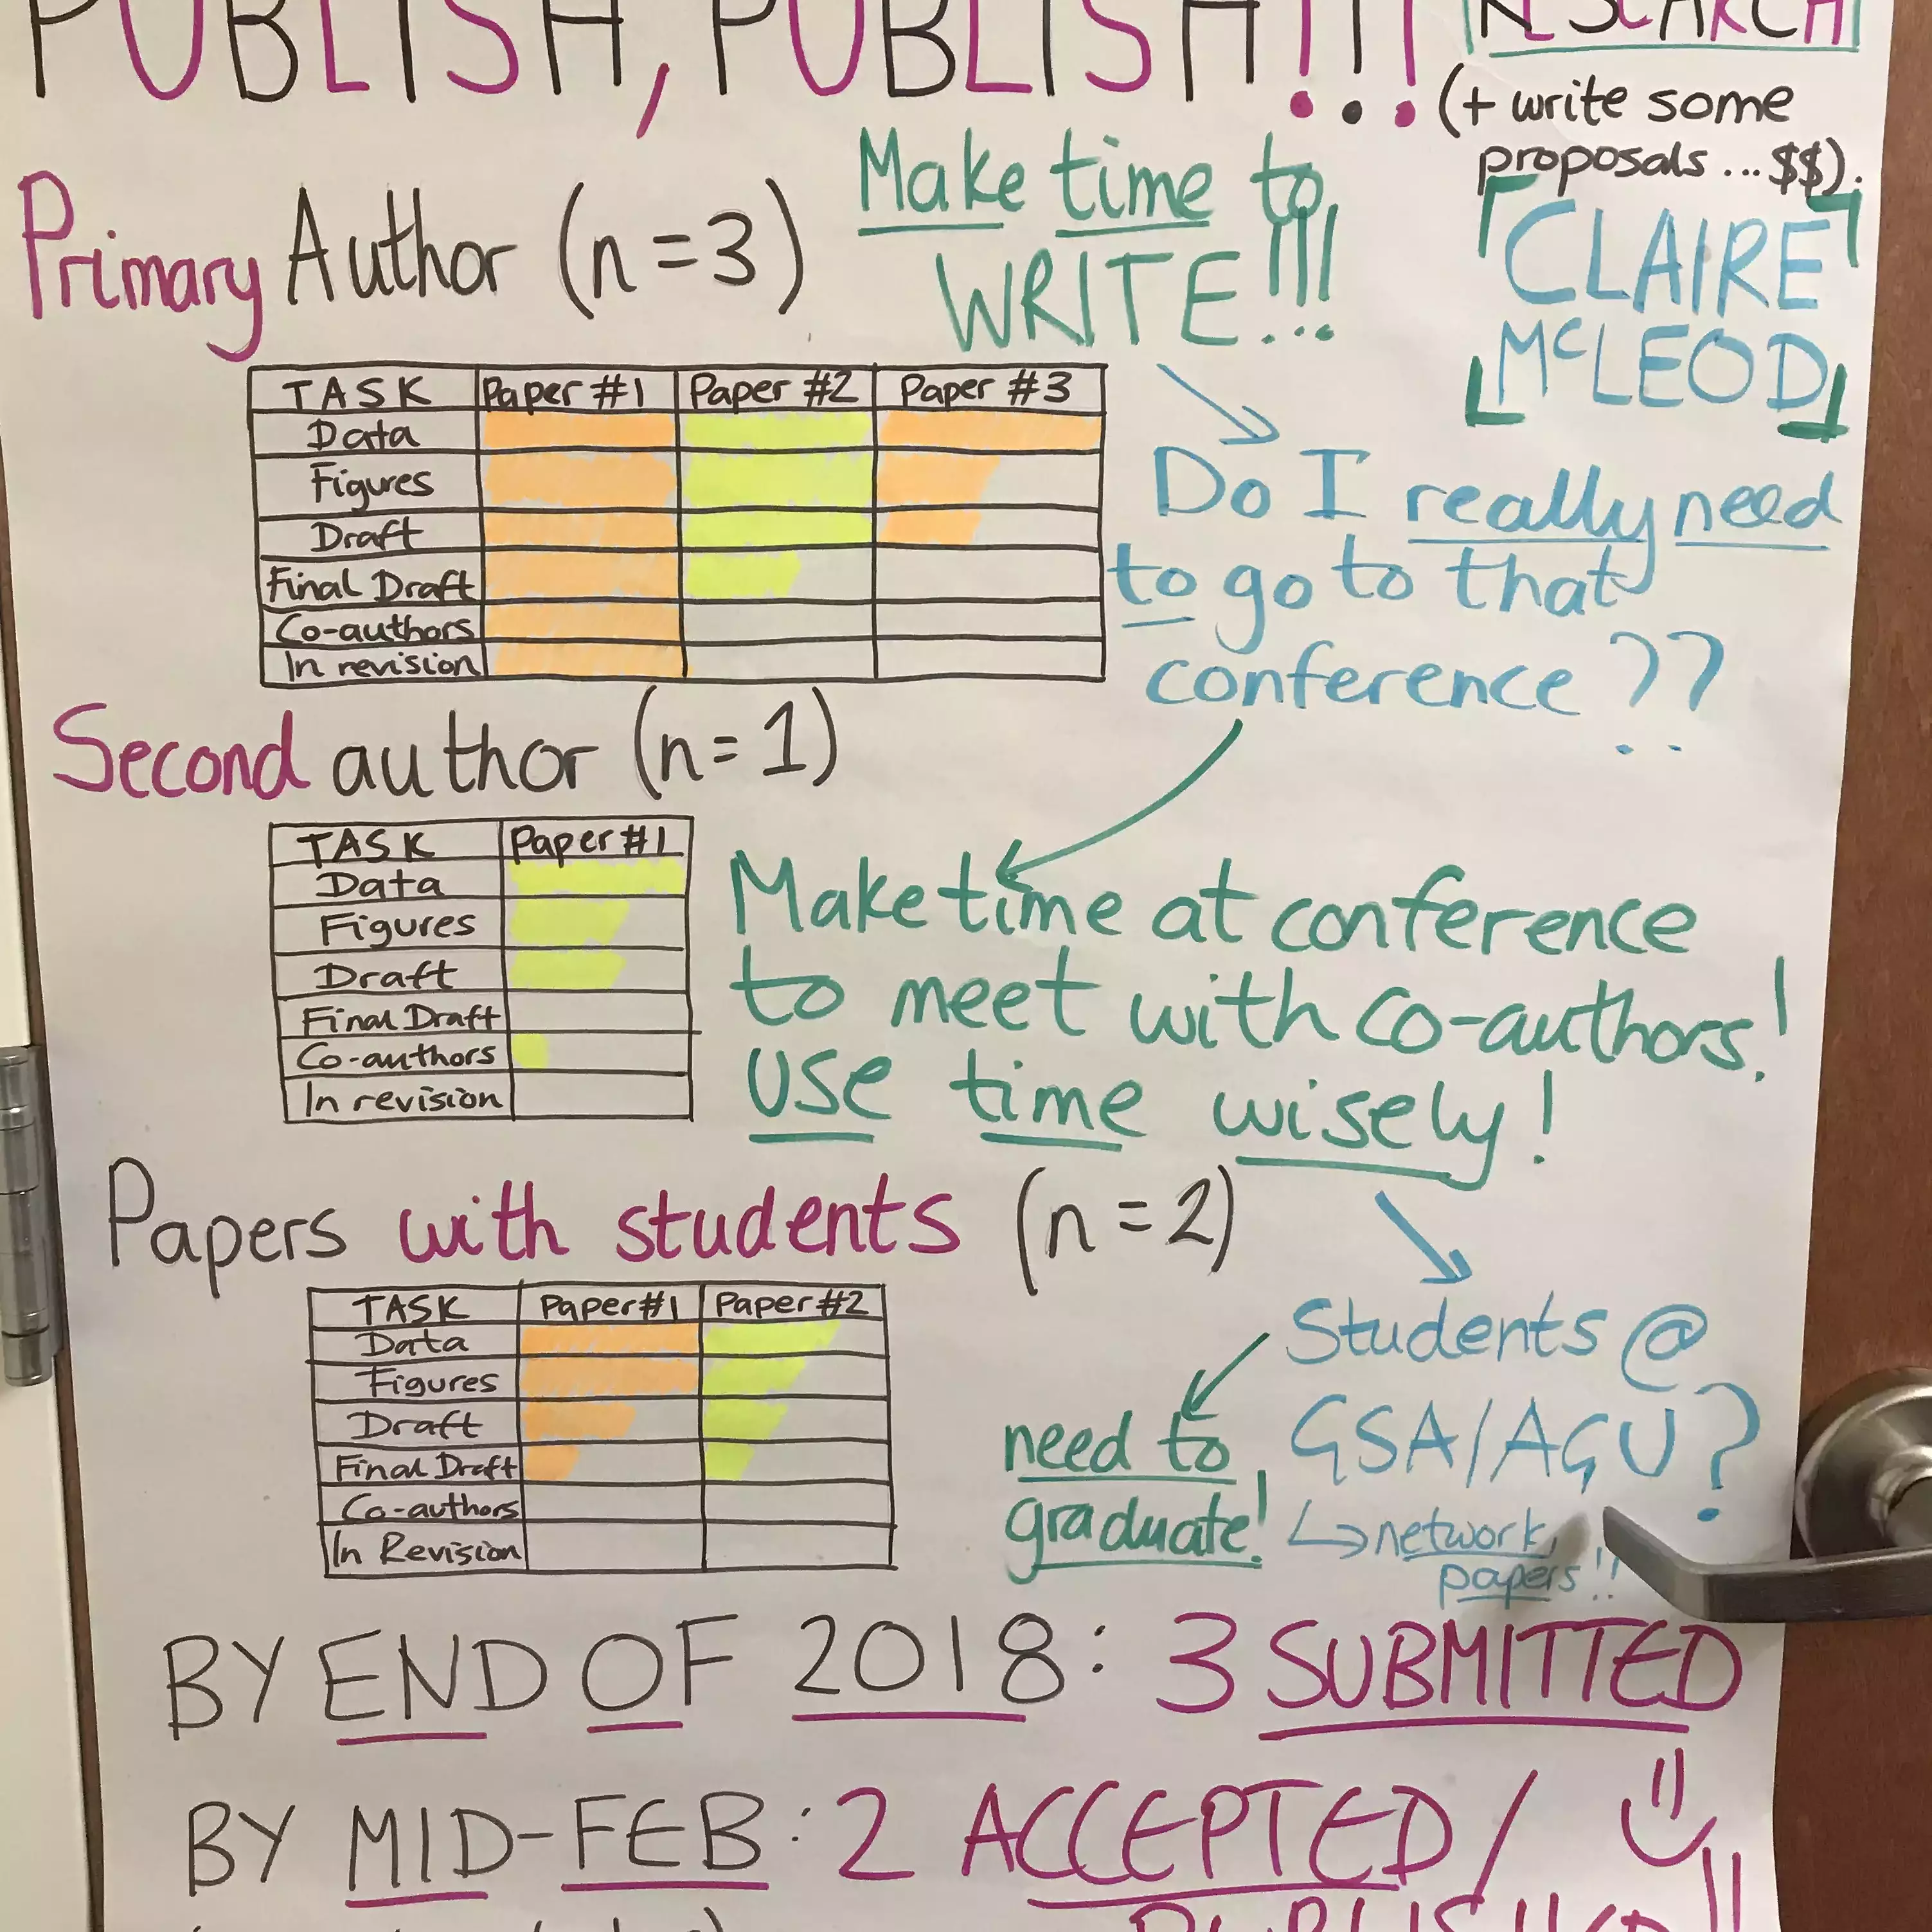 PUBLISH, PUBLISH!!!
RESEARCH
(+ write some
proposals...$$).
CLAIRE
McLEOD
Make time to
WRITE!!!
Primary Author (n=3)
TASK Paper #1 Paper #2 Paper #3
Data
Figures
Draft
Final Draft
Co-authors
In revision
Do I really need
to go to that
conference??
Second author (n=1)
TASK Paper #1
Data
Figures
Draft
Final Draft
Co-authors
In revision
Make time at conference
to meet with co-authors!
USE time wisely!
Papers with students (n=2)
TASK Paper#1 Paper #2
Data
Figures
Draft
Final Draft
Co-authors
In Revision
Students @
GSA/AGU?
network,
papers!!
need to
graduate!
BY END OF 2018: 3 SUBMITTED
BY MID-FEB: 2 ACCEPTED/
PUBLISHED!!